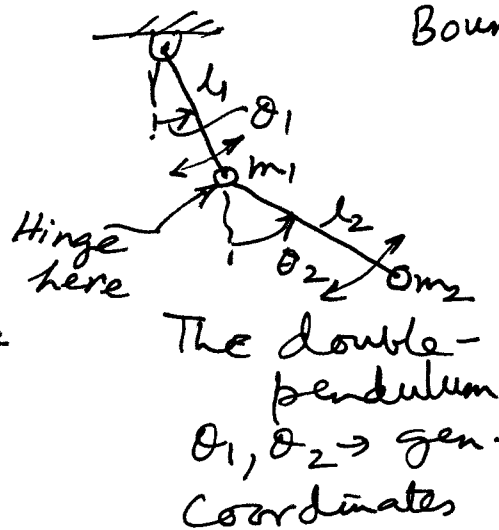 Boun
l1
θ1
m1
Hinge
here
l2
θ2
m2
The double-
pendulum
θ1, θ2 → gen.
coordinates